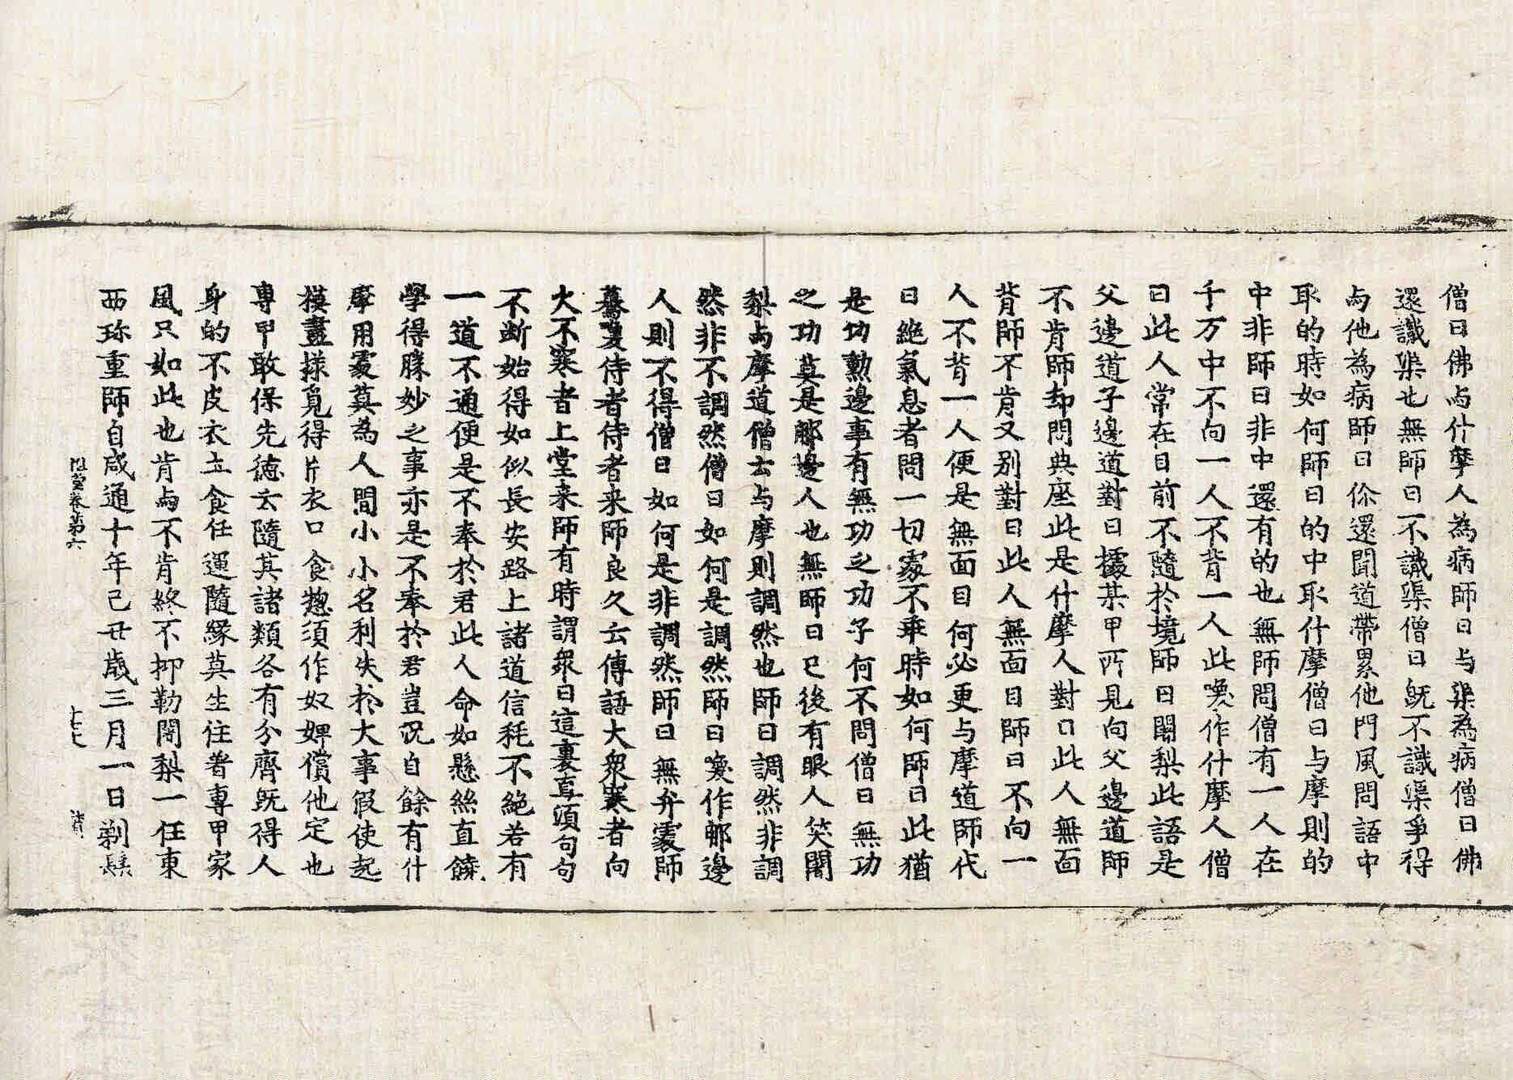 僧曰佛与什摩人為病師曰与渠為病僧曰佛
還識渠也無師曰不識渠僧曰既不識渠爭得
与他為病師曰你還聞道帶累他門風問語中
取的時如何師曰的中取什摩僧曰与摩則的
中非師曰非中還有的也無師問僧有一人在
千万中不向一人不背一人此喚作什摩人僧
曰此人常在目前不隨於境師曰闍梨此語是
父邊道子邊道對曰據某甲所見向父邊道師
不肯師却問典座此是什摩人對曰此人無面
背師不肯又別對曰此人無面目師曰不向一
人不背一人便是無面目何必更与摩道師代
曰絕氣息者問一切處不乘時如何師曰此猶
是功勳邊事有無功之功子何不問僧曰無功
之功莫是那邊人也無師曰已後有眼人笑闍
梨与摩道僧云与摩則調然也師曰調然非調
然非不調然僧曰如何是調然師曰喚作那邊
人則不得僧曰如何是非調然師曰無弁處師
驀喚侍者侍者来師良久云傳語大衆寒者向
大不寒者上堂来師有時謂衆曰這裏直須句句
不断始得如似長安路上諸道信耗不絕若有
一道不通便是不奉於君此人命如懸絲直饒
學得勝妙之事亦是不奉於君豈況自餘有什
摩用處莫為人間小小名利失於大事假使起
摸盡㨾覓得片衣口食惣須作奴婢償他定也
專甲敢保先德云隨其諸類各有分齊既得人
身的不皮衣立食任運隨緣莫生住著專甲家
風只如此也肯与不肯終不抑勒闍梨一任東
西珎重師自咸通十年己丑歲三月一日剃髮
祖堂卷第六